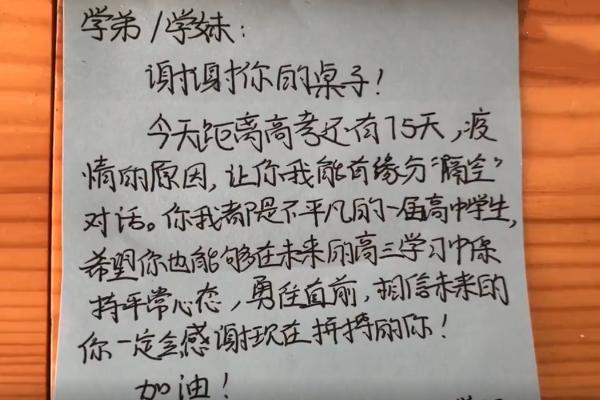 学弟/学妹:
谢谢你的桌子!
今天距离高考还有15天,疫
情的原因,让你我能有缘分“隔空”
对话。你我都是不平凡的一届高中学生,
希望你也能够在未来的高三学习中保
持平常心态,勇往直前,相信未来的
你一定会感谢现在拼搏的你!
加油!